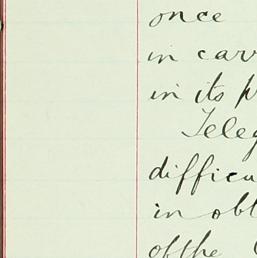 once
in carr
in its p
Teleg
difficu
in obt
of the